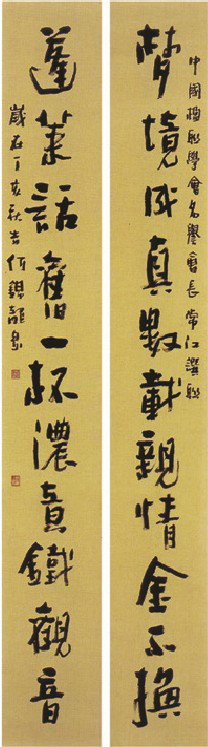 中國楹聯學會名譽會長常江撰聯
梦境成真數載親情金不換
蓬萊話舊一杯濃意鐵觀音
歲在丁亥秋吉